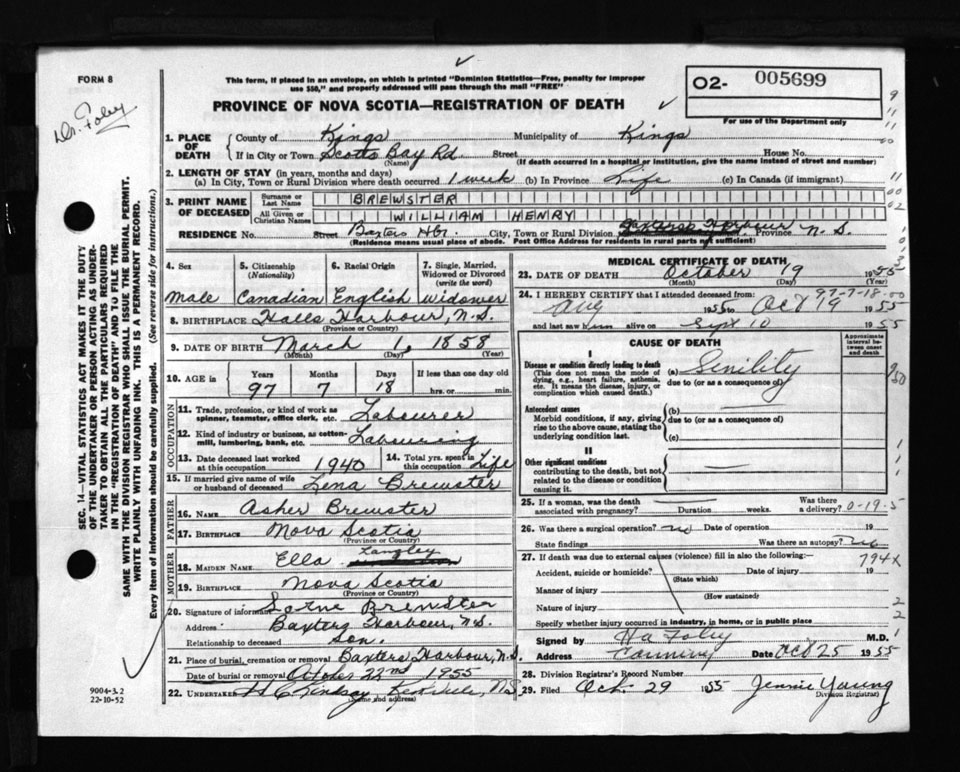 FORM 8
Dr. Foley
This form, if placed in an envelope, on which is printed "Dominion Statistics—Free, penalty for improper
use $50," and properly addressed will pass through the mail "FREE"
PROVINCE OF NOVA SCOTIA—REGISTRATION OF DEATH
O2- 005699
For use of the Department only
1. PLACE OF DEATH { County of Kings Municipality of Kings
If in City or Town Scotts Bay Rd. Street House No.
(Name) (If death occurred in a hospital or institution, give the name instead of street and number)
2. LENGTH OF STAY (in years, months and days)
(a) In City, Town or Rural Division where death occurred 1 week (b) In Province Life (c) In Canada (if immigrant)
3. PRINT NAME OF DECEASED { Surname or Last Name BREWSTER
All Given or Christian Names WILLIAM HENRY
RESIDENCE No. Street Baxters Hbr. City, Town or Rural Division Baxters Harbour Province N. S.
(Residence means usual place of abode. Post Office Address for residents in rural parts not sufficient)
4. Sex
Male
5. Citizenship (Nationality)
Canadian
6. Racial Origin
English
7. Single, Married, Widowed or Divorced (write the word)
Widower
8. BIRTHPLACE Halls Harbour, N.S.
(Province or Country)
9. DATE OF BIRTH March 1, 1858
(Month) (Day) (Year)
10. AGE in { Years Months Days If less than one day
97 7 18 hrs. or min.
OCCUPATION
11. Trade, profession, or kind of work as spinner, teamster, office clerk, etc. Labourer
12. Kind of industry or business, as cotton-mill, lumbering, bank, etc. Labouring
13. Date deceased last worked at this occupation 1940
14. Total yrs. spent in this occupation Life
15. If married give name of wife or husband of deceased Lena Brewster
FATHER
16. NAME Asher Brewster
17. BIRTHPLACE Nova Scotia
(Province or Country)
MOTHER
18. MAIDEN NAME Ella Langley
19. BIRTHPLACE Nova Scotia
(Province or Country)
20. Signature of informant Brewster
Address Baxters Harbour, N.S.
Relationship to deceased Son.
21. Place of burial, cremation or removal Baxters Harbour, N.S.
Date of burial or removal October 22nd 1955
22. UNDERTAKER Lindsay, Kentville, N.S
(Name and address)
MEDICAL CERTIFICATE OF DEATH
23. DATE OF DEATH October 19 1955
(Month) (Day) (Year)
97-7-18-00
24. I HEREBY CERTIFY that I attended deceased from:
Aug 1955 to Oct 19 1955
and last saw him alive on Sept 10 1955
CAUSE OF DEATH
Approximate interval between onset and death
I
Disease or condition directly leading to death
(This does not mean the mode of dying, e.g., heart failure, asthenia, etc. It means the disease, injury, or complication which caused death.)
(a) Senility
due to (or as a consequence of)
Antecedent causes
Morbid conditions, if any, giving rise to the above cause, stating the underlying condition last.
(b)
due to (or as a consequence of)
(c)
II
Other significant conditions
contributing to the death, but not related to the disease or condition causing it.
25. If a woman, was the death associated with pregnancy? Duration weeks. Was there a delivery?
0-19-5
26. Was there a surgical operation? no Date of operation 19
State findings Was there an autopsy? no
27. If death was due to external causes (violence) fill in also the following:—
794x
Accident, suicide or homicide? Date of injury 19
(State which)
Manner of injury
(How sustained)
Nature of injury
Specify whether injury occurred in industry, in home, or in public place
Signed by H A Foley M.D.
Address Canning Date Oct 25 1955
28. Division Registrar's Record Number
29. Filed Oct. 29 1955 Jennie Young
Division Registrar)
SEC. 14—VITAL STATISTICS ACT MAKES IT THE DUTY
OF THE UNDERTAKER OR PERSON ACTING AS UNDER-
TAKER TO OBTAIN ALL THE PARTICULARS REQUIRED
IN THE "REGISTRATION OF DEATH" AND TO FILE THE
SAME WITH THE DIVISION REGISTRAR WHO SHALL ISSUE THE BURIAL PERMIT.
WRITE PLAINLY WITH UNFADING INK. THIS IS A PERMANENT RECORD.
Every item of information should be carefully supplied. (See reverse side for instructions.)
9004-3.2
22-10-52